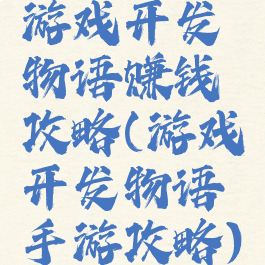 游戏开发
物语赚钱
攻略(游戏
开发物语
手游攻略)